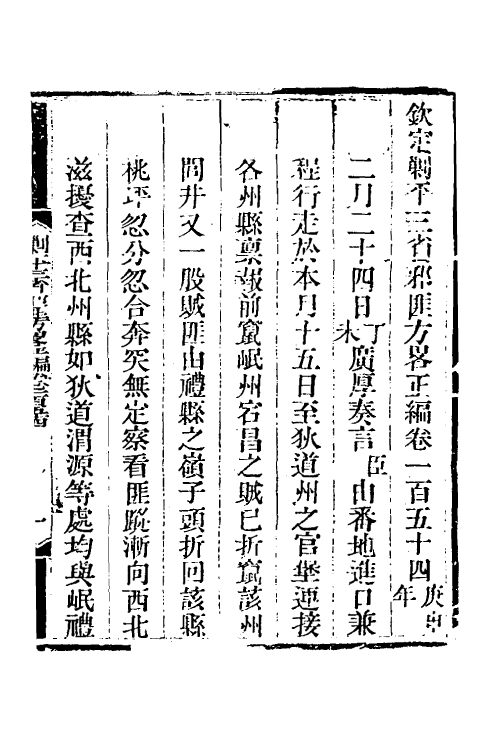 欽定剿平三省邪匪方畧正編卷一百五十四庚申年
二月二十四日丁未廣厚奏言臣由番地進口兼
程行走於本月十五日至狄道州之官堡連接
各州縣稟報前竄岷州宕昌之賊已折竄該州
閭井又一股賊匪由禮縣之嶺子頭折回該縣
桃坪忽分忽合奔突無定察看匪蹤漸向西北
滋擾查西北州縣如狄道渭源等處均與岷禮